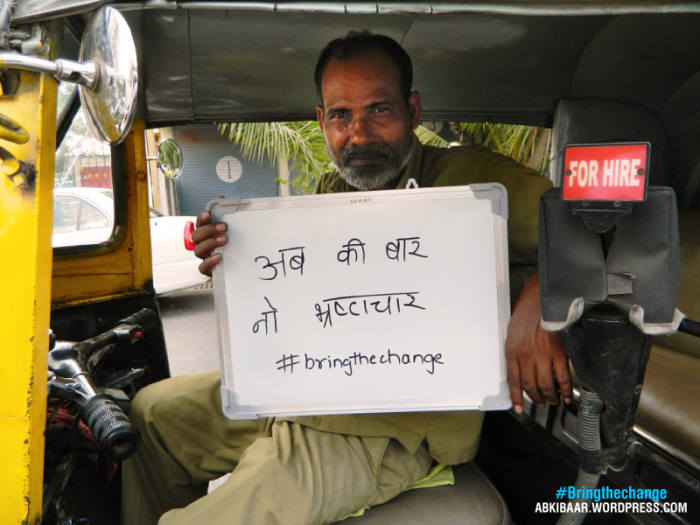 FOR HIRE
अब की बार
नो भ्रष्टाचार
#bringthechange
#Bringthechange
ABKIBAAR.WORDPRESS.COM